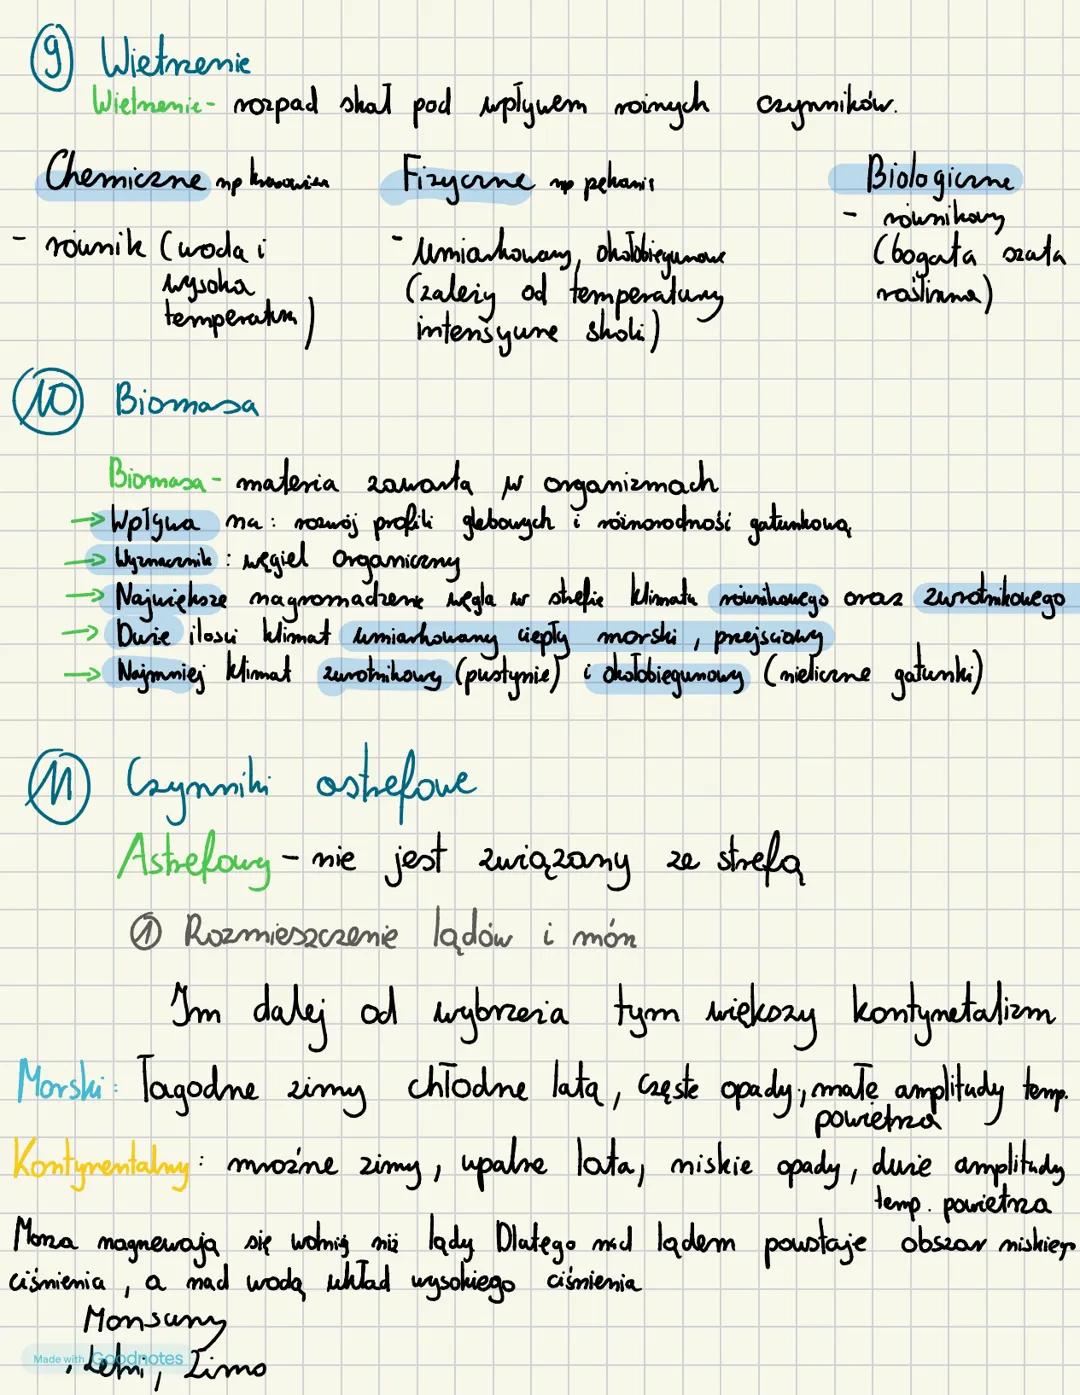 9 Wietrzenie
Wietrzenie - rozpad skał pod wpływem różnych czynników.
Chemiczne np krasowien Fizyczne np pękanie Biologiczne
- równik (woda i wysoka temperatura)
- umiarkowany, okołobiegunowe (zależy od temperatury intensywne skoki)
- równikowy (bogata szata roślinna)
10 Biomasa
Biomasa - materia zawarta w organizmach
→ Wpływa na: rozwój profili glebowych i różnorodność gatunkową
→ Wyznacznik: węgiel organiczny
→ Największe nagromadzenie węgla w strefie klimatu równikowego oraz zwrotnikowego
→ Duże ilości klimat umiarkowany ciepły morski, przejściowy
→ Najmniej klimat zwrotnikowy (pustynie) i okołobiegunowy (nieliczne gatunki)
11 Czynniki astrefowe
Astrefowy - nie jest związany ze strefą
① Rozmieszczenie lądów i mórz
Im dalej od wybrzeża tym większy kontynetalizm
Morski: Łagodne zimy chłodne lata, częste opady, małe amplitudy temp.
powietrza
Kontynentalny: mroźne zimy, upalne lata, niskie opady, duże amplitudy
temp. powietrza
Morza nagrzewają się wolniej niż lądy Dlatego nad lądem powstaje obszar niskiego
ciśnienia, a nad wodą układ wysokiego ciśnienia
Monsuny
Made with Goodnotes
Letni, Zimo